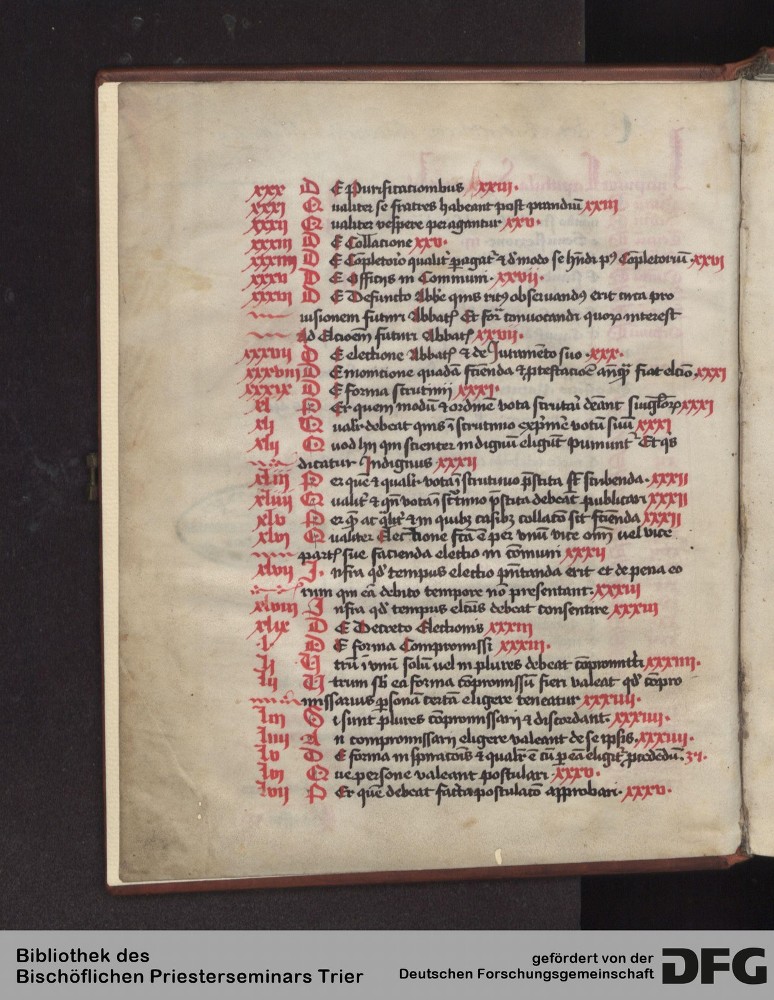 xxx D E Purificationibus xxiii.
xxxi Q ualiter se fratres habeant post prandiū xxiii
xxxii Q ualiter vespere peragantur xxv.
xxxiii D E Collatione xxv.
xxxiiii D E Cōpletorio qualit̄ ꝑagat᷑ & d' modo se hn̄di pꝰ Cōpletoriū xxvi
xxxv D E Officiis in Communi. xxvii.
xxxvi D E Defuncto Abbe quis ritꝰ observandꝰ erit circa pro
visionem futuri Abbat̄ Et for convocandi quorꝝ interest
Ad Elctōem futuri Abbat̄ xxvii.
xxxvii D E electione Abbat̄ & de Iuramēto suo. xxx.
xxxviii D E monitione quadā fcīenda & ꝓtestatiōe anq̄ fiat elctio. xxxi
xxxix D E forma scrutinii xxxi.
xl P Er quem modū & ordinē vota scrutari dēant xxxi
xli Q ualit̄ debeat quis ī scrutinio exp̄mē votū suū xxxi
xlii Q uod hii qui scienter indignū eligūt Puniunt᷑ Et qs
dicatur Indignus xxxii
xliii P er quē & qualit̄ vota ī scrutinio p̄stita st̄ scribenda. xxxii
xliiii Q ualit̄ & qn̄ vota ī scrutinio p̄stita debeāt publicari xxxii
xlv P er quē ac qualit̄ & in quibꝫ casibꝫ collatō sit fcīenda xxxii
xlvi Q ualiter Electione fcā ē per vnū vice oīm vel vice
part̄ sue facienda electio in cōmuni xxxii
xlvii I. nfra qd' tempus electio pn̄tanda erit et de pena eo
rum qui eā debito tempore nō presentant. xxxiii
xlviii I nfra qd' tempus elctūs debeat consentire xxxiii
xlix D E Decreto Electionis xxxiii
l D E forma Compromissi xxxiii.
li U trū ī vnū solū vel in plures debeat cōpromitti xxxiiii.
lii U trum sb̄ ea forma cōpromissū fieri valeat qd' cōpro
missarius ꝑsonā certā eligere teneatur xxxiiii.
liii S i sunt plures cōpromissarii & discordant. xxxiiii.
liiii A n compromissarii eligere valeant de se ipsis. xxxiiii.
lv D E forma inspiratōis & qualit̄ ē cū ꝑ eā eligit᷑ ꝓcedēdū. 34.
lvi Q ue persone valeant postulari. xxxv.
lvii P Er quē debeat facta postulatō approbari. xxxv.
Bibliothek des
Bischöflichen Priesterseminars Trier
gefördert von der
Deutschen Forschungsgemeinschaft DFG